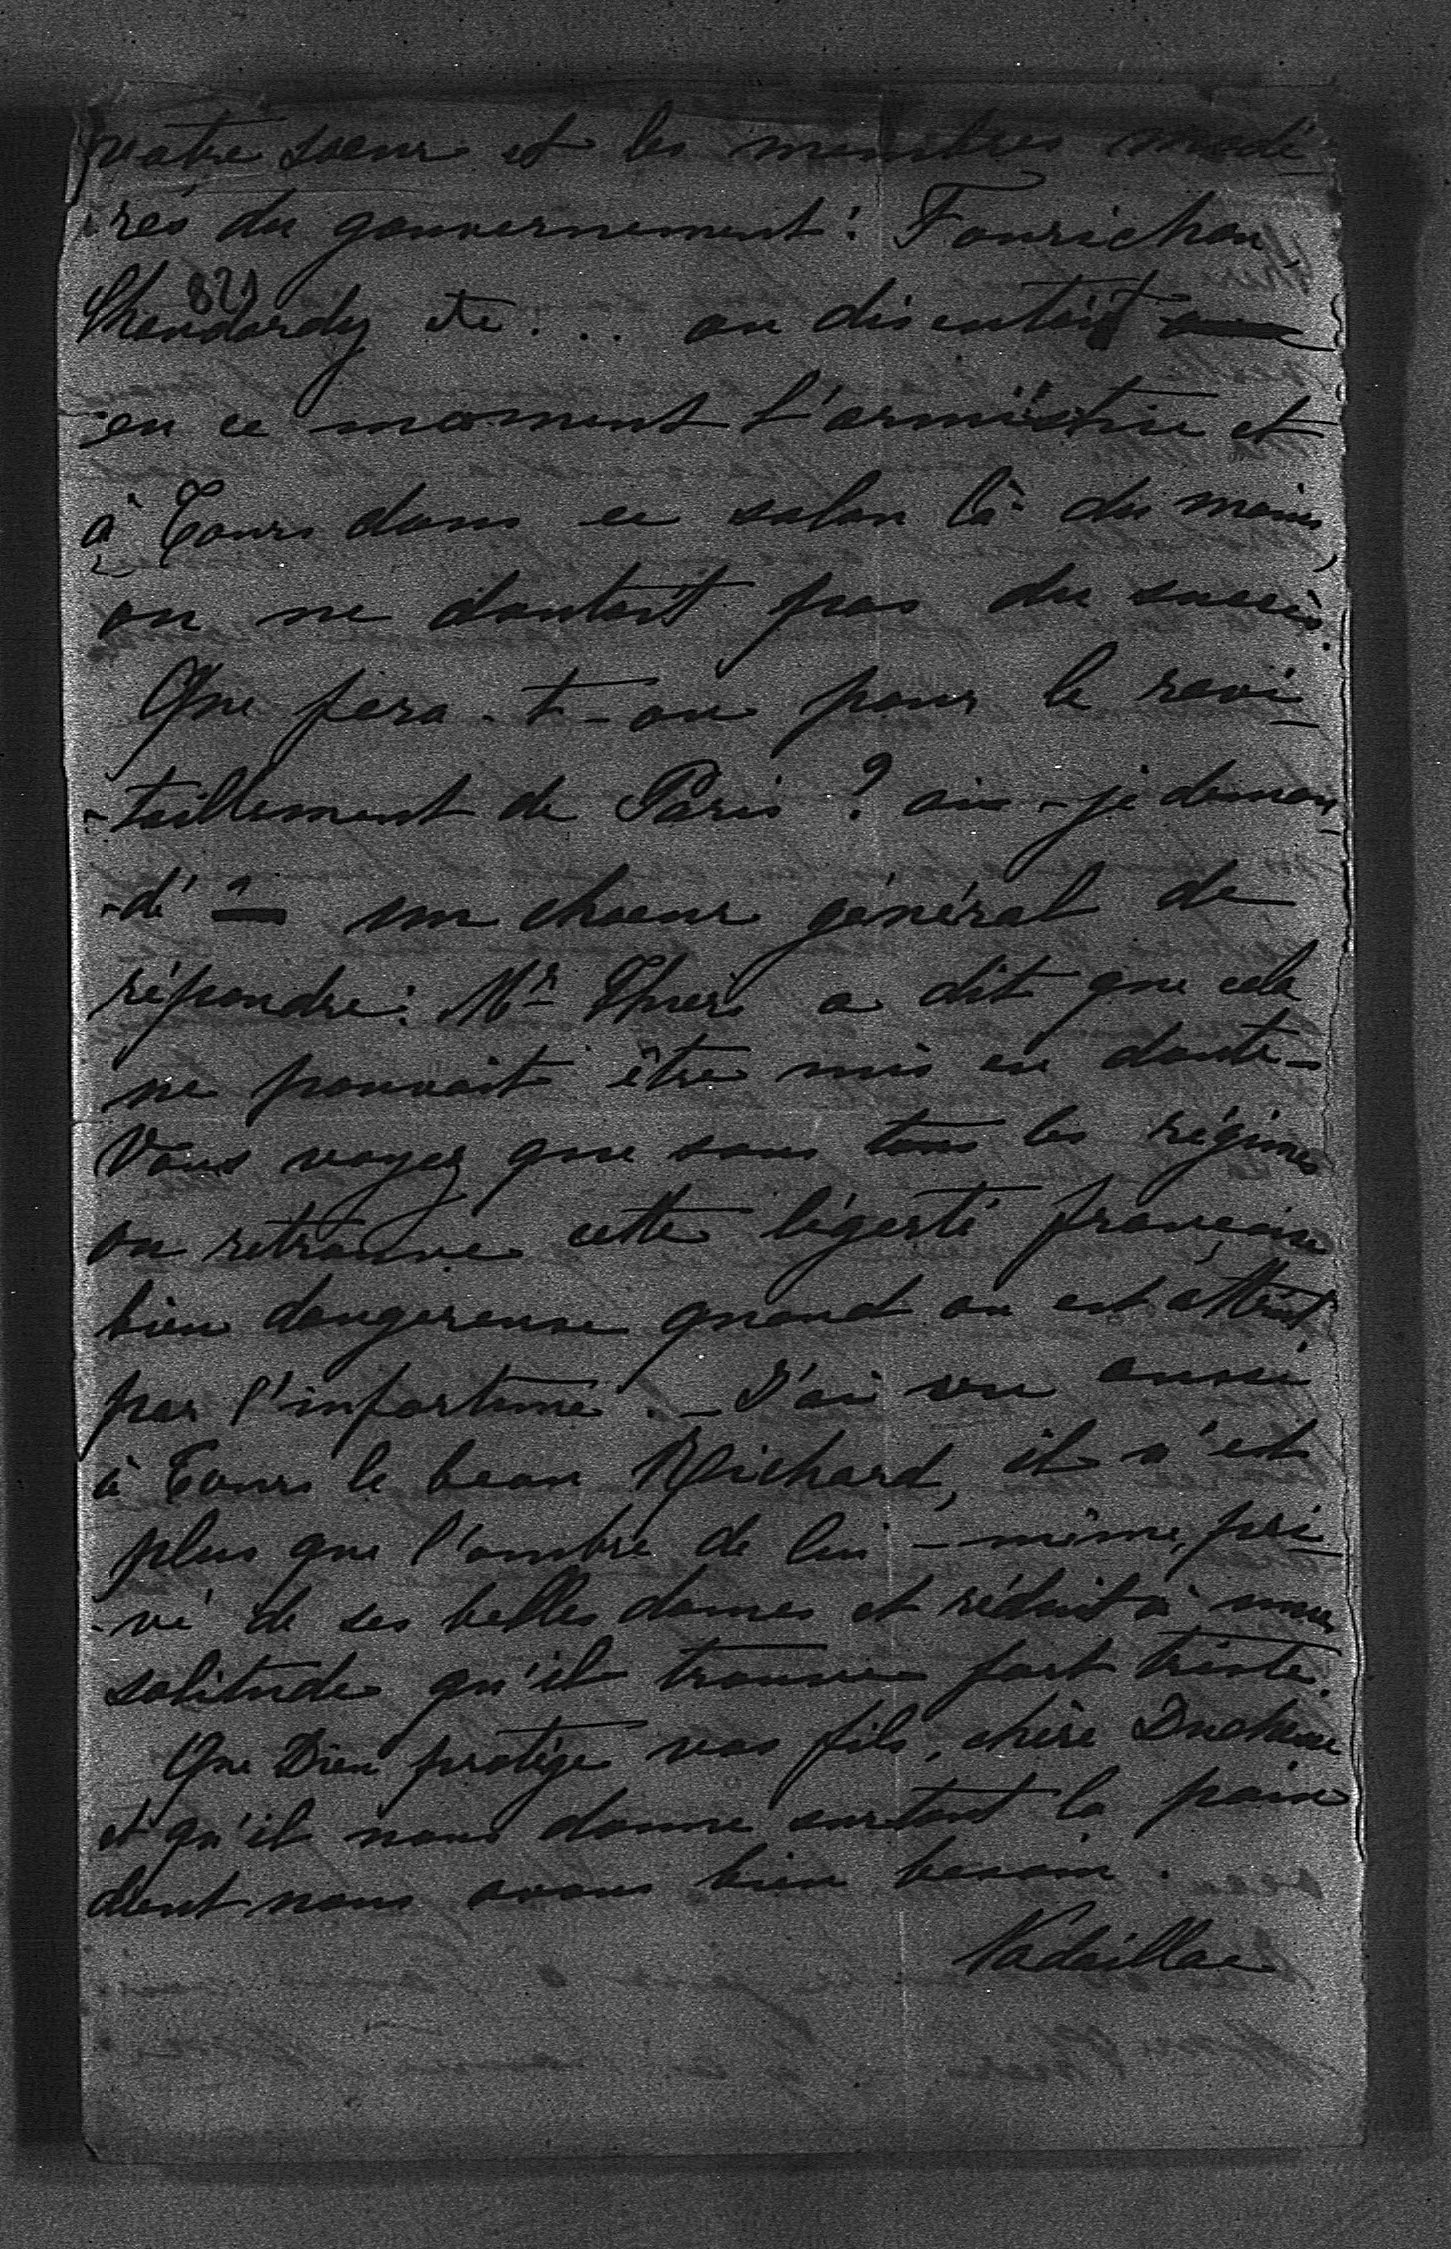 votre sœur et les ministres modé
-rés du gouvernement : Fourichon,
821
Chaudordy etc... on discutait
en ce moment l'armistice et
à Tours dans ce salon là du moins,
on ne doutait pas du succès.
Que fera-t-on pour le ravi-
-taillement de Paris ? ai-je deman-
-dé un choeur général de
répondre : Mr Thiers a dit que cela
ne pouvait être mis en doute -
Vous voyez que sous tous les régimes
on retrouve cette légerté française
bien dangereuse quand on est atteint
par l'infortune. - J'ai vu aussi
à Tours le beau Richard, il n'est
plus que l'ombre de lui-même, pri-
-vé de ses belles dames et réduit à une
solitude qu'il trouve fort triste.
Que Dieu protège vos fils, chère Duchesse
et qu'il nous donne surtout la paix
dont nous avons bien besoin.
Nadaillac